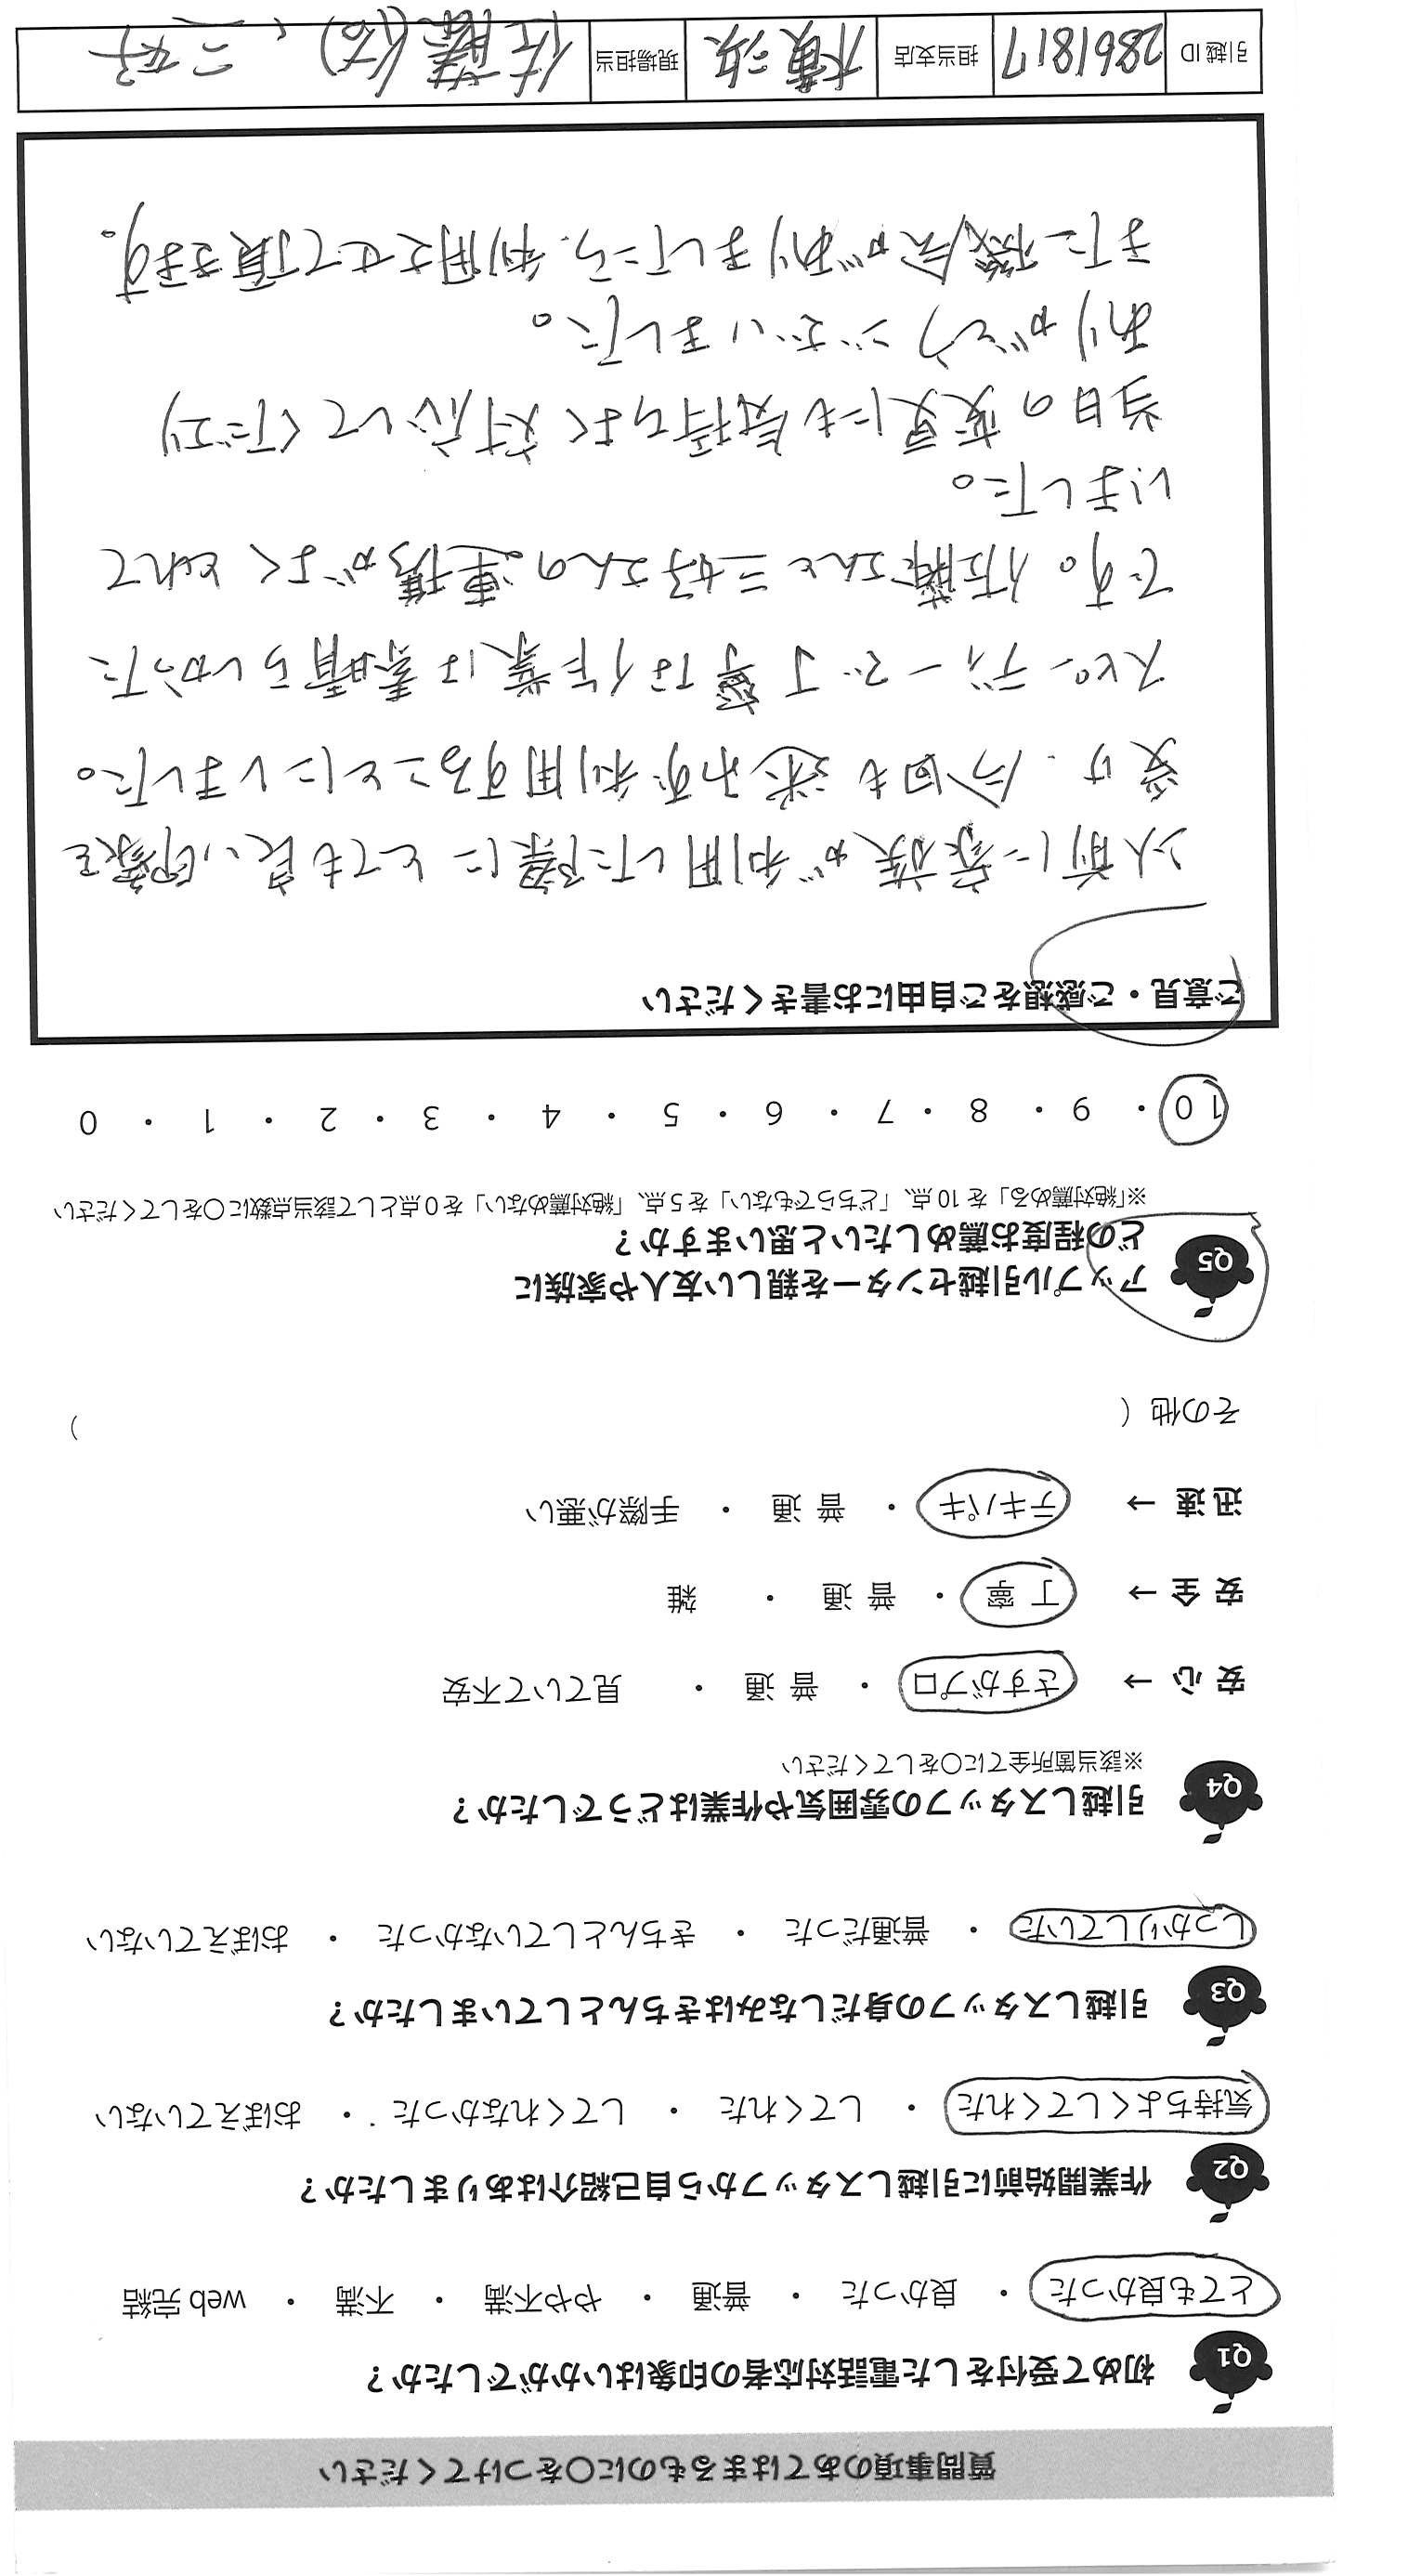 質問事項のあてはまるものに〇をつけてください
Q1 初めて受付をした電話対応者の印象はいかがでしたか？
とても良かった ・ 良かった ・ 普通 ・ やや不満 ・ 不満 ・ web 完結
Q2 作業開始前に引越しスタッフから自己紹介はありましたか？
気持ちよくしてくれた ・ してくれた ・ してくれなかった ・ おぼえていない
Q3 引越しスタッフの身だしなみはきちんとしていましたか？
しっかりしていた ・ 普通だった ・ きちんとしていなかった ・ おぼえていない
Q4 引越しスタッフの雰囲気や作業はどうでしたか？
※該当箇所全てに〇をしてください
安心 → さすがプロ ・ 普通 ・ 見ていて不安
安全 → 丁寧 ・ 普通 ・ 雑
迅速 → テキパキ ・ 普通 ・ 手際が悪い
その他（ ）
Q5 アップル引越センターを親しい友人や家族に
どの程度お薦めしたいと思いますか？
※「絶対薦める」を 10 点、「どちらでもない」を 5 点、「絶対薦めない」を 0 点として該当点数に〇をしてください
10 ・ 9 ・ 8 ・ 7 ・ 6 ・ 5 ・ 4 ・ 3 ・ 2 ・ 1 ・ 0
ご意見・ご感想をご自由にお書きください
以前に家族が利用した際にとても良い印象を
受け、今回も迷わず利用することにしました。
スピーディーで丁寧な作業は素晴らしかった
です。佐藤さんと三好さんの連携がよくとれて
いました。
当日の変更にも気持ちよく対応してくださり
ありがとうございました。
また機会がありましたら、利用させて頂きます。
引越 ID 2861817 担当支店 横浜 現場担当 佐藤(佑)、三好